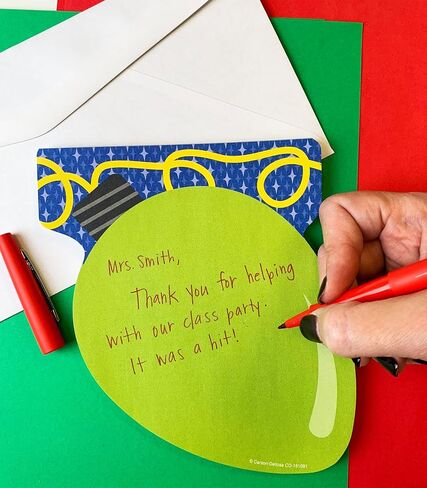 Mrs. Smith,
Thank you for helping
with our class party.
It was a hit!
© Carson-Dellosa CD-151091